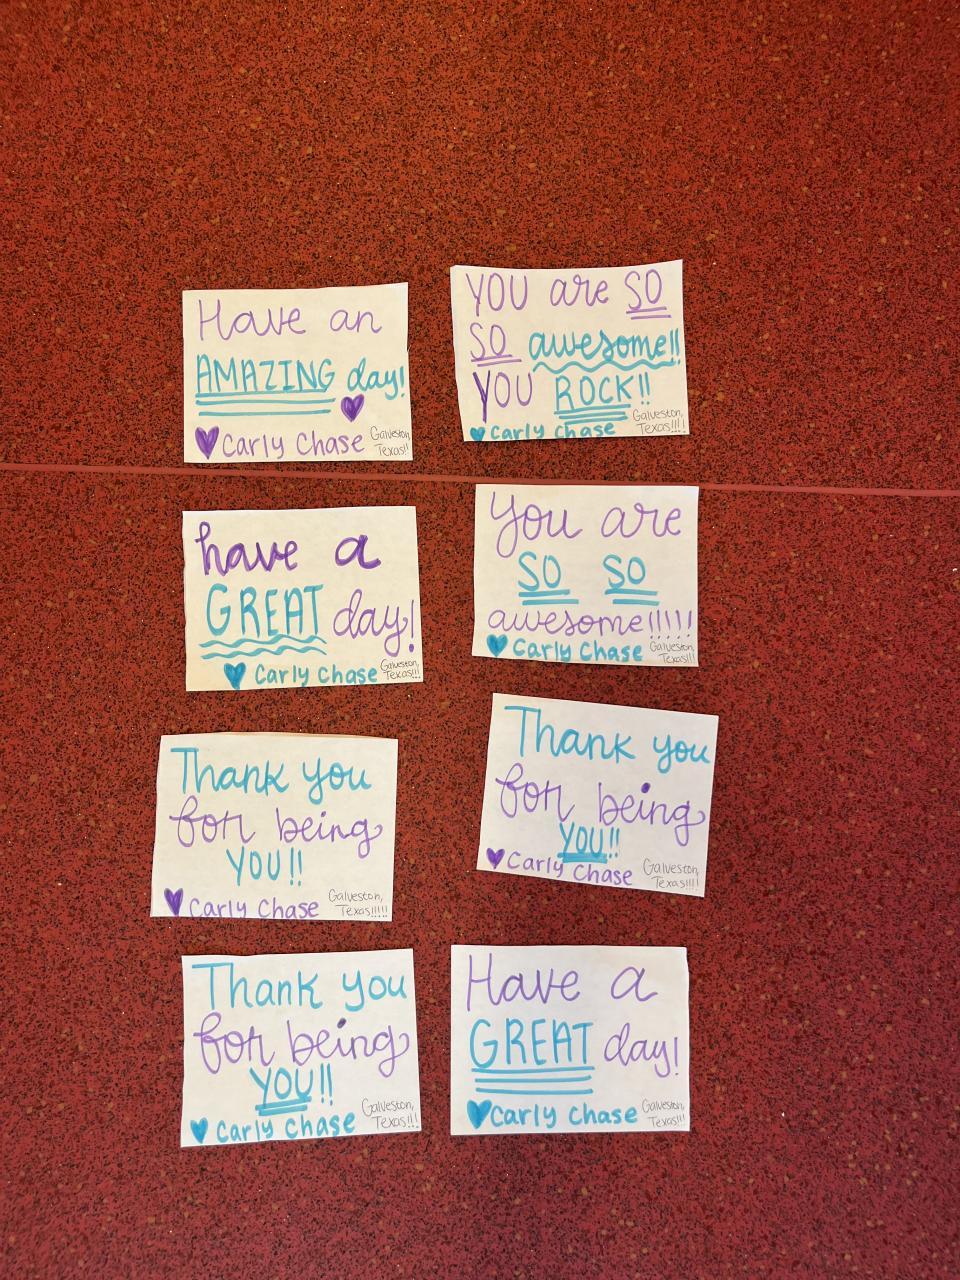 Have an
AMAZING day!
Carly Chase
Galveston,
Texas!!
YOU are SO
SO awesome!!
YOU ROCK!!
Carly Chase
Galveston,
Texas!!!!
have a
GREAT day!
Carly Chase
Galveston,
Texas!!!
You are
SO SO
awesome!!!!!
Carly Chase
Galveston,
Texas!!!
Thank you
for being
YOU!!
Carly Chase
Galveston,
Texas!!!!!
Thank you
for being
YOU!!
Carly Chase
Galveston,
Texas!!!!
Thank you
for being
YOU!!
Carly Chase
Galveston,
Texas!!!
Have a
GREAT day!
Carly Chase
Galveston,
Texas!!!